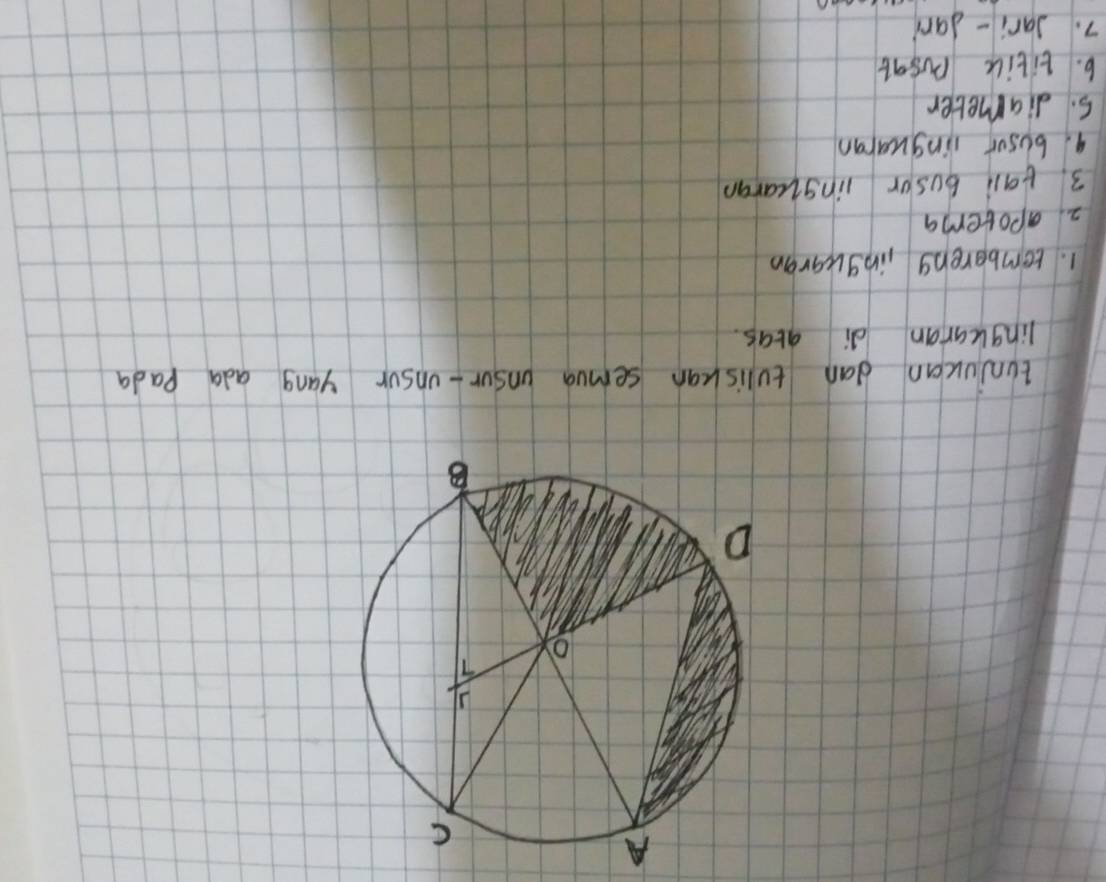 A
C
D
O
L
B
tunjukan dan tuliskan semua unsur-unsur yang ada Pada
lingkaran di atas.
1. tembereng lingkaran
2. apotema
3. tali busur lingkaran
4. busur lingkaran
5. diameter
6. titik Pusat
7. Jari-Jari